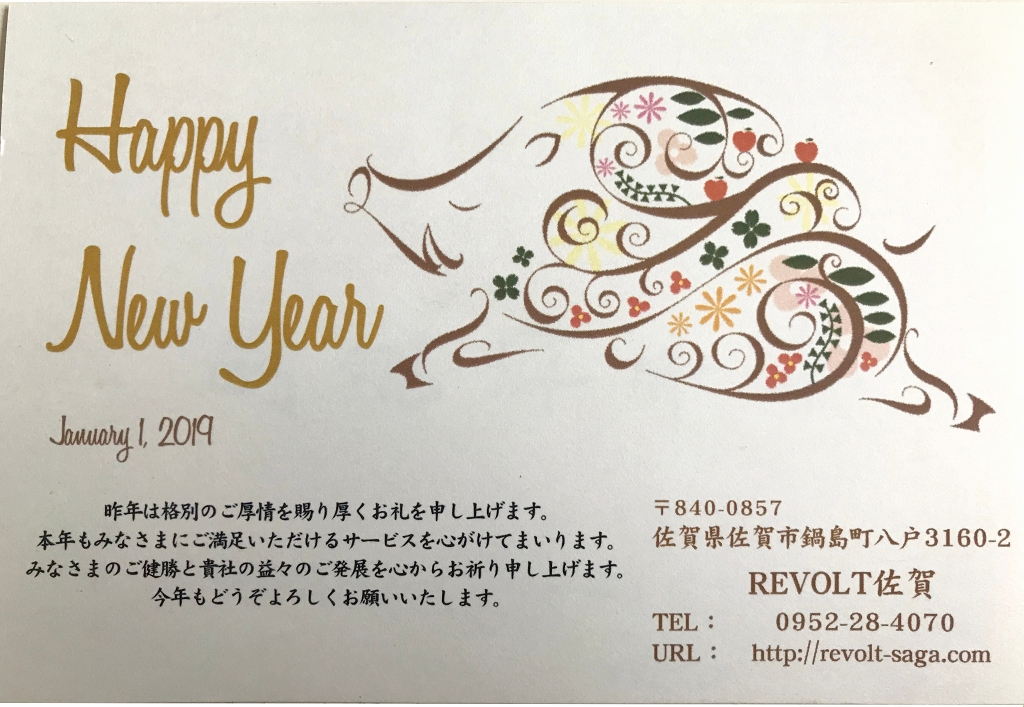 Happy
New Year
January 1, 2019
昨年は格別のご厚情を賜り厚くお礼を申し上げます。
本年もみなさまにご満足いただけるサービスを心がけてまいります。
みなさまのご健勝と貴社の益々のご発展を心からお祈り申し上げます。
今年もどうぞよろしくお願いいたします。
〒840-0857
佐賀県佐賀市鍋島町八戸3160-2
REVOLT佐賀
TEL： 0952-28-4070
URL： http://revolt-saga.com